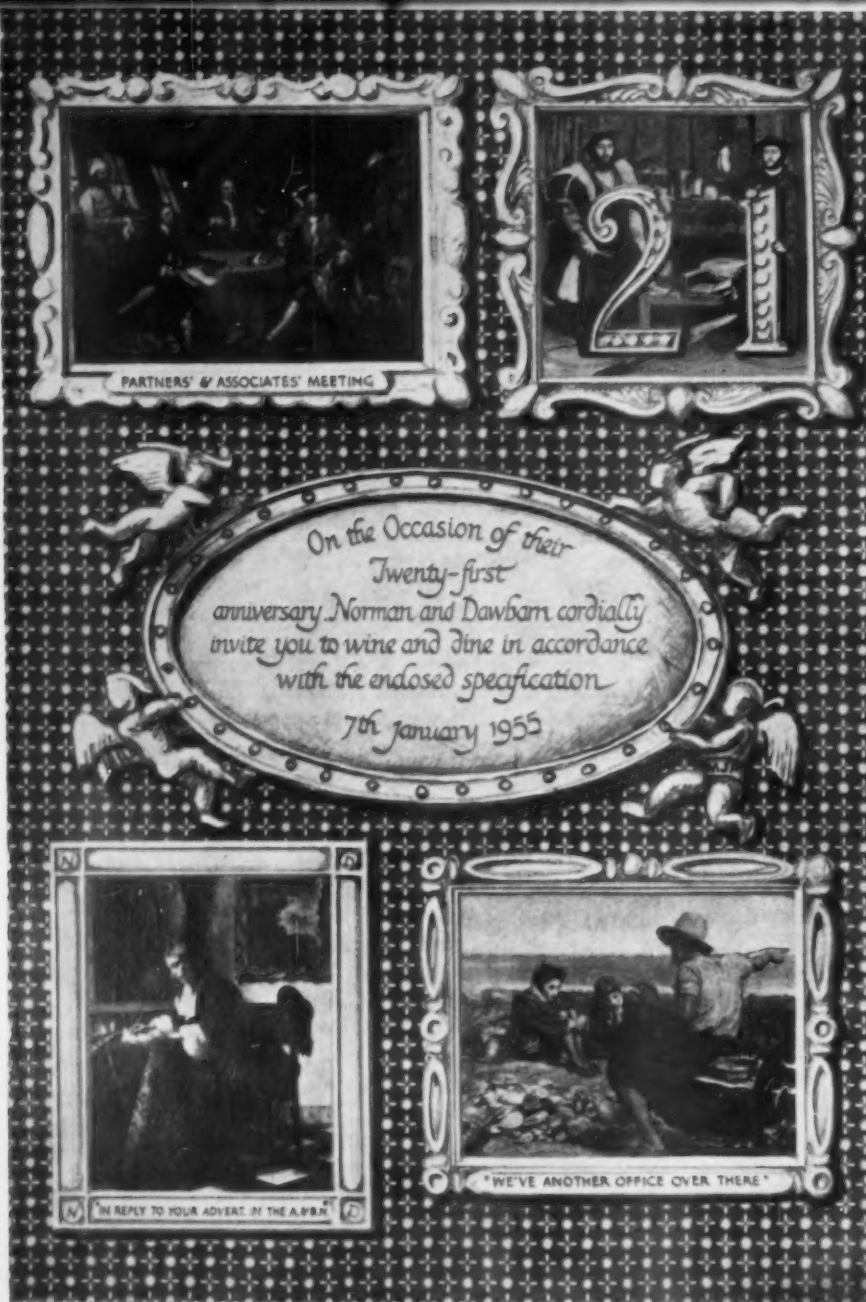 PARTNERS' & ASSOCIATES' MEETING
21
On the Occasion of their
Twenty-first
anniversary. Norman and Dawbarn cordially
invite you to wine and dine in accordance
with the enclosed specification
7th January 1955
N D
N "IN REPLY TO YOUR ADVERT. IN THE A.&B.N." D
"WE'VE ANOTHER OFFICE OVER THERE"